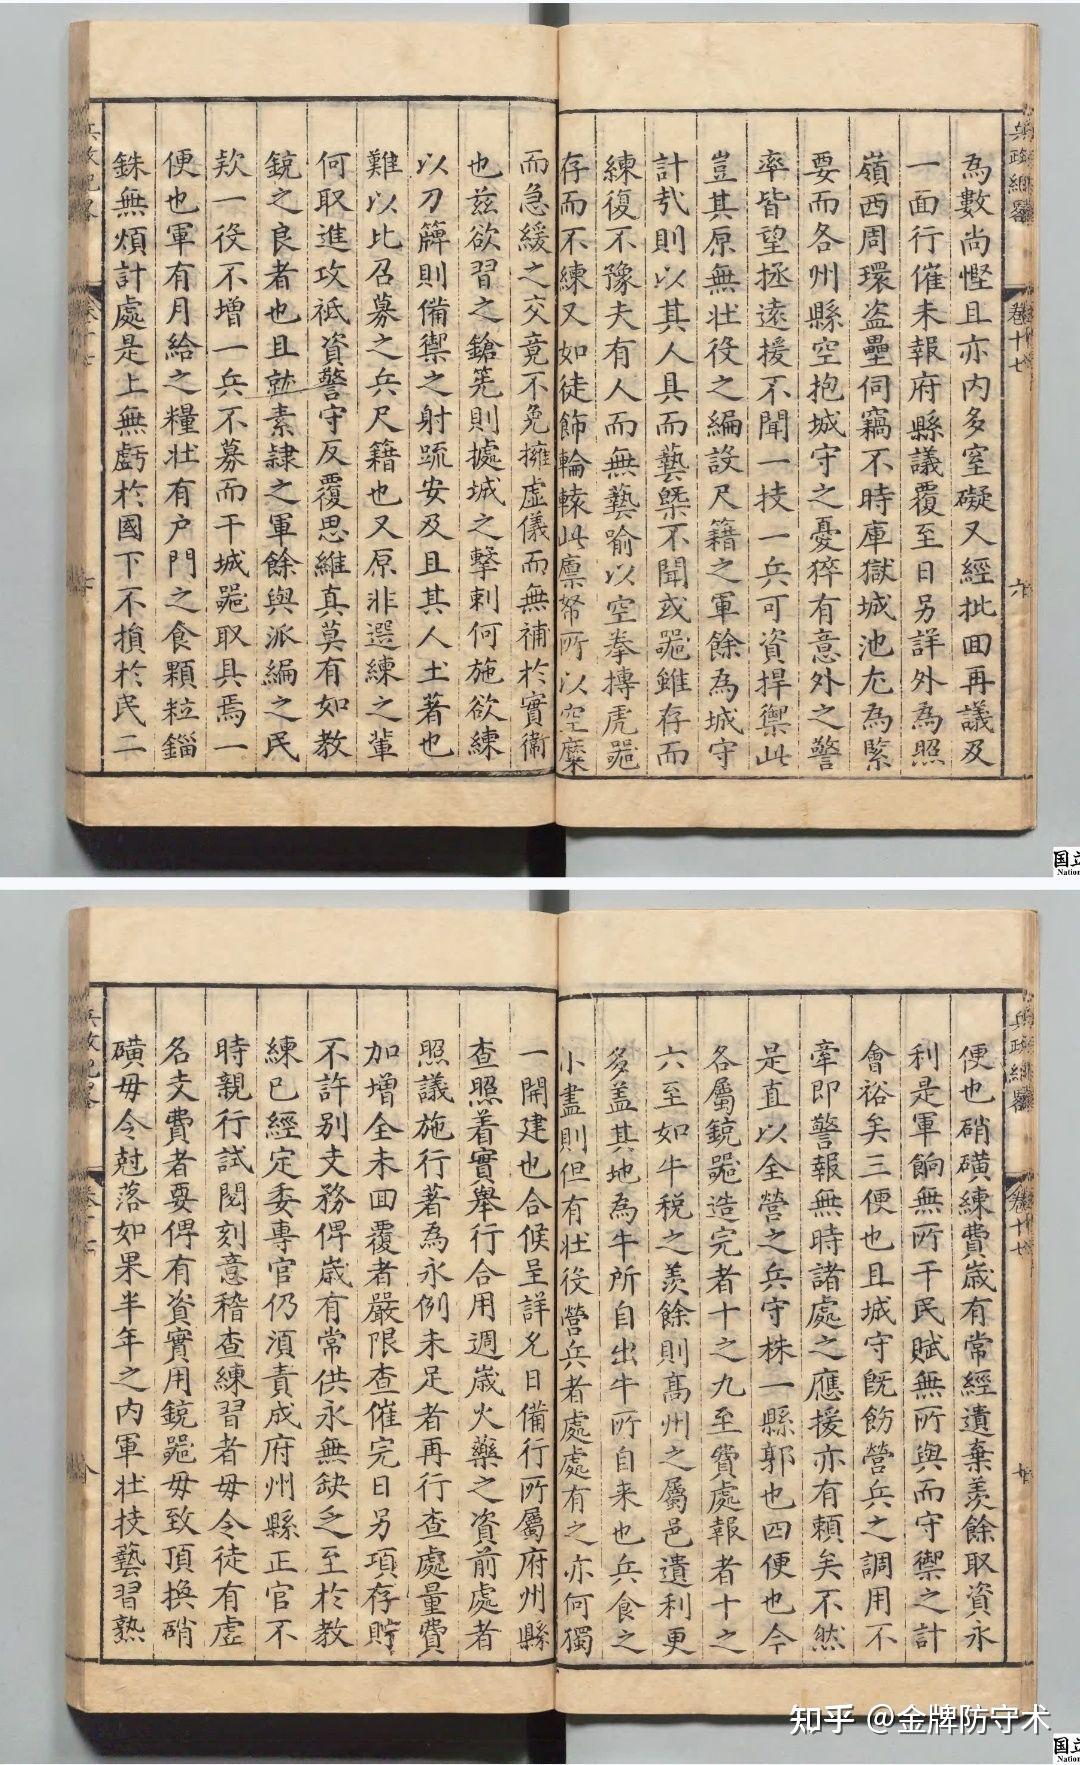 兵政紀畧
卷十七
為數尚慳且亦內多窒礙又經批回再議及
一面行催未報府縣議覆至日另詳外為照
嶺西周環盜壘伺竊不時庫獄城池尢為緊
要而各州縣空抱城守之憂猝有意外之警
率皆望拯遠援不聞一技一兵可資捍禦此
豈其原無壯役之編設尺籍之軍餘為城守
計㢤則以其人具而藝槩不聞或噐雖存而
練復不豫夫有人而無藝喻以空拳摶虎噐
存而不練又如徒飾輪轅此廪帑所以空糜
而急緩之交竟不免擁虛儀而無補於實衛
也茲欲習之鎗筅則據城之擊刺何施欲練
以刀簰則備禦之射疏安及且其人土著也
難以比召募之兵尺籍也又原非選練之軰
何取進攻祗資警守反覆思維真莫有如教
鏡之良者也且就素隸之軍餘與派編之民
欵一役不增一兵不募而干城噐取具焉一
便也軍有月給之糧壯有户門之食顆粒錙
銖無煩計處是上無虧於國下不損於民二
兵政紀畧
卷十七
便也硝磺練費歲有常經遺棄羨餘取資永
利是軍餉無所干民賦無所與而守禦之計
會裕矣三便也且城守既飭營兵之調用不
牽即警報無時諸處之應援亦有賴矣不然
是直以全營之兵守株一縣郭也四便也今
各屬鏡噐造完者十之九至費處報者十之
六至如牛稅之羨餘則高州之屬邑遺利更
多盖其地為牛所自出牛所自来也兵食之
小盡則但有壯役營兵者處處有之亦何獨
一開建也合候呈詳允日備行所屬府州縣
查照着實舉行合用週歲火藥之資前處者
照議施行著為永例未足者再行查處量費
加增全未回覆者嚴限查催完日另項存貯
不許别支務俾歲有常供永無缺乏至於教
練已經定委專官仍湏責成府州縣正官不
時親行試閱刻意稽查練習者毋令徒有虛
名支費者要俾有資實用鏡噐毋致頂換硝
磺毋令尅落如果半年之內軍壯技藝習熟
知乎 @金牌防守术
国立
Nation